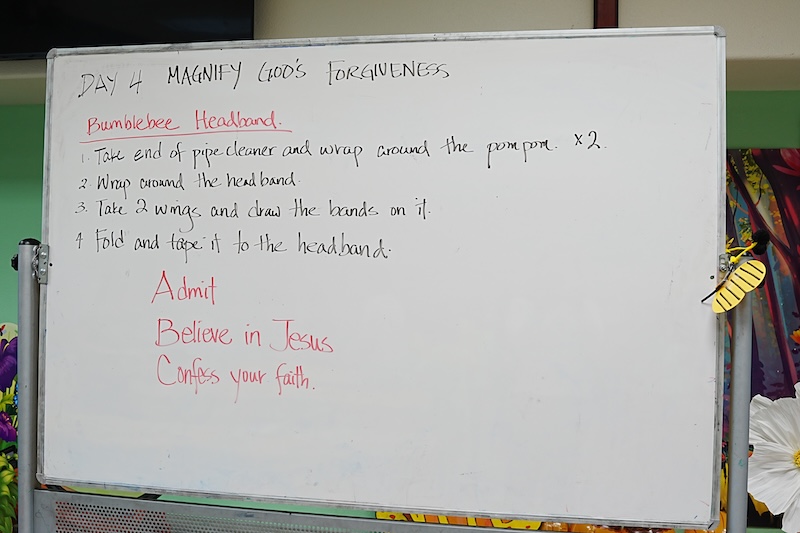 DAY 4 MAGNIFY GOD'S FORGIVENESS
Bumblebee Headband.
1. Take end of pipecleaner and wrap around the pompom. x2.
2. Wrap around the headband.
3. Take 2 wings and draw the bands on it.
4 Fold and tape it to the headband.
Admit
Believe in Jesus
Confess your faith.